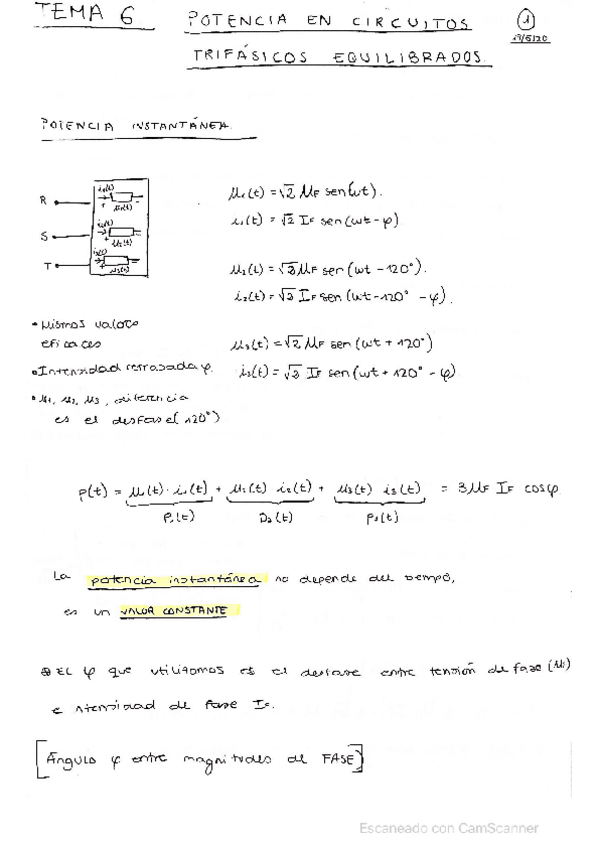 TEMA 6 POTENCIA EN CIRCUITOS
TRIFÁSICOS EQUILIBRADOS.
1
POTENCIA INSTANTÁNEA.
R
S
T
i₁(t)
+ u₁(t) -
i₂(t)
+ u₂(t)
i₃(t)
+ u₃(t)
u₁(t) = √2 UF sen(wt).
i₁(t) = √2 IF sen(wt-φ)
u₂(t) = √2 UF sen(wt-120°).
i₂(t) = √2 IF sen(wt-120° -φ).
u₃(t) = √2 UF sen(wt + 120°)
i₃(t) = √2 IF sen(wt + 120° - φ)
• Mismos valores
eficaces
• Intensidad retrasada φ.
• u₁, u₂, u₃, diferencia
es el desfase (120°)
P(t) = u₁(t)· i₁(t) + u₂(t) i₂(t) + u₃(t) i₃(t) = 3UF IF cosφ.
P₁(t) P₂(t) P₃(t)
La potencia instantánea no depende del tiempo,
es un VALOR CONSTANTE
⊛ El φ que utilizamos es el desfase entre tensión de fase
e intensidad de fase IF.
[Ángulo φ entre magnitudes de FASE]
Escaneado con CamScanner